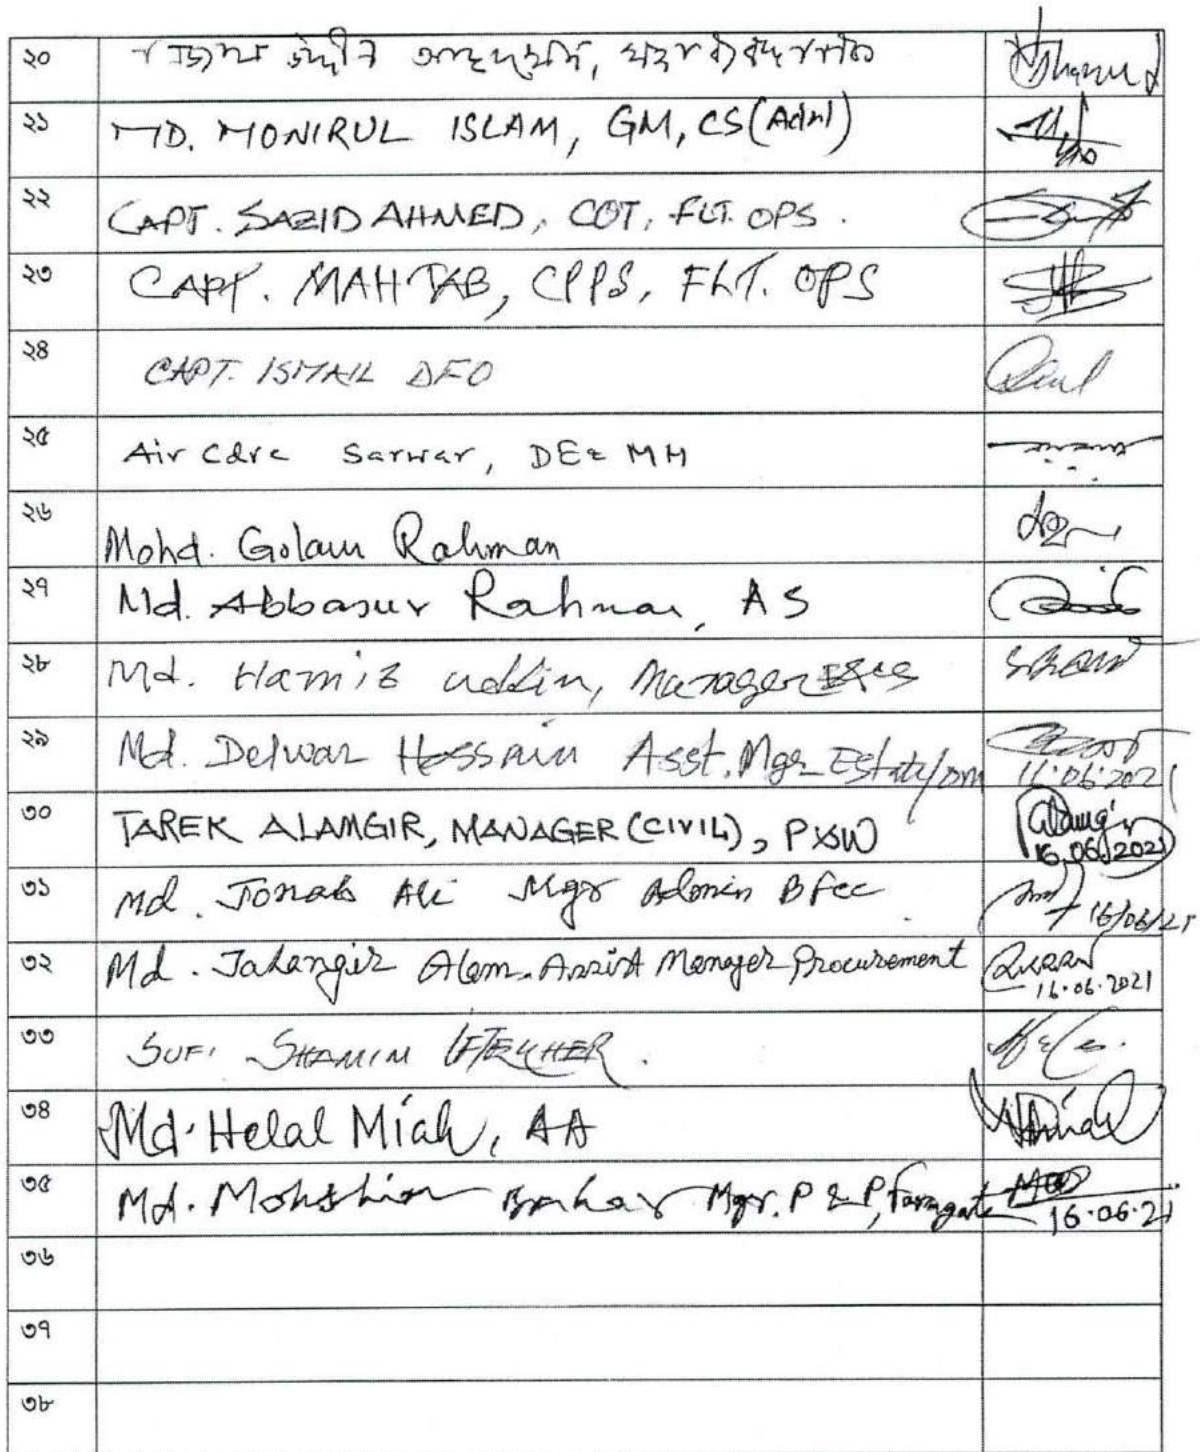 ২০ উদ্দীন আহমেদ,
২১ MD. MONIRUL ISLAM, GM, CS (Adml)
২২ CAPT. SAZID AHMED, COT, FLT. OPS.
২৩ CAPT. MAHTAB, CPPS, FLT. OPS
২৪ CAPT. ISMAIL DFO
২৫ Air Cdre Sarwar, DE& MM
২৬ Mohd. Golam Rahman
২৭ Md. Abbasur Rahman, AS
২৮ Md. Hamiz uddin, Manager
২৯ Md. Delwar Hossain Asst. Mgr Estate/om 16.06.2021
৩০ TAREK ALAMGIR, MANAGER (CIVIL), P&W Alamgir 16.06.2021
৩১ Md. Jonab Ali Mgr Admin BFCC 16/06/21
৩২ Md. Jahangir Alam. Assist Manager Procurement 16.06.2021
৩৩ SUFI SHAMIM IFTEKHER.
৩৪ Md. Helal Miah, AA
৩৫ Md. Mohshin Mgr. P & P, Farmgate 16.06.21
৩৬
৩৭
৩৮